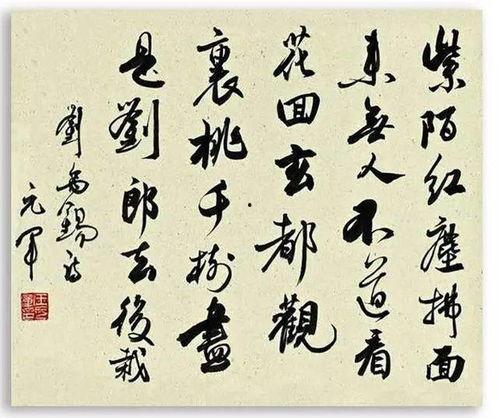 紫陌红塵拂面
来無人不道看
花回玄都觀
裏桃千樹盡
是劉郎去後栽
劉禹錫詩
元軍